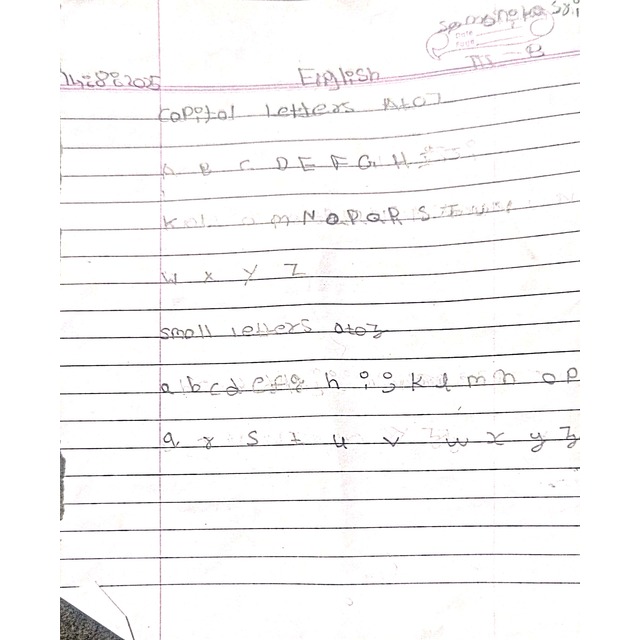 Date
Page
III - B
English
Capital letters A to Z
A B C D E F G H I J
K L M N O P Q R S T U V
W X Y Z
small letters a to z
a b c d e f g h i j k l m n o p
q r s t u v w x y z